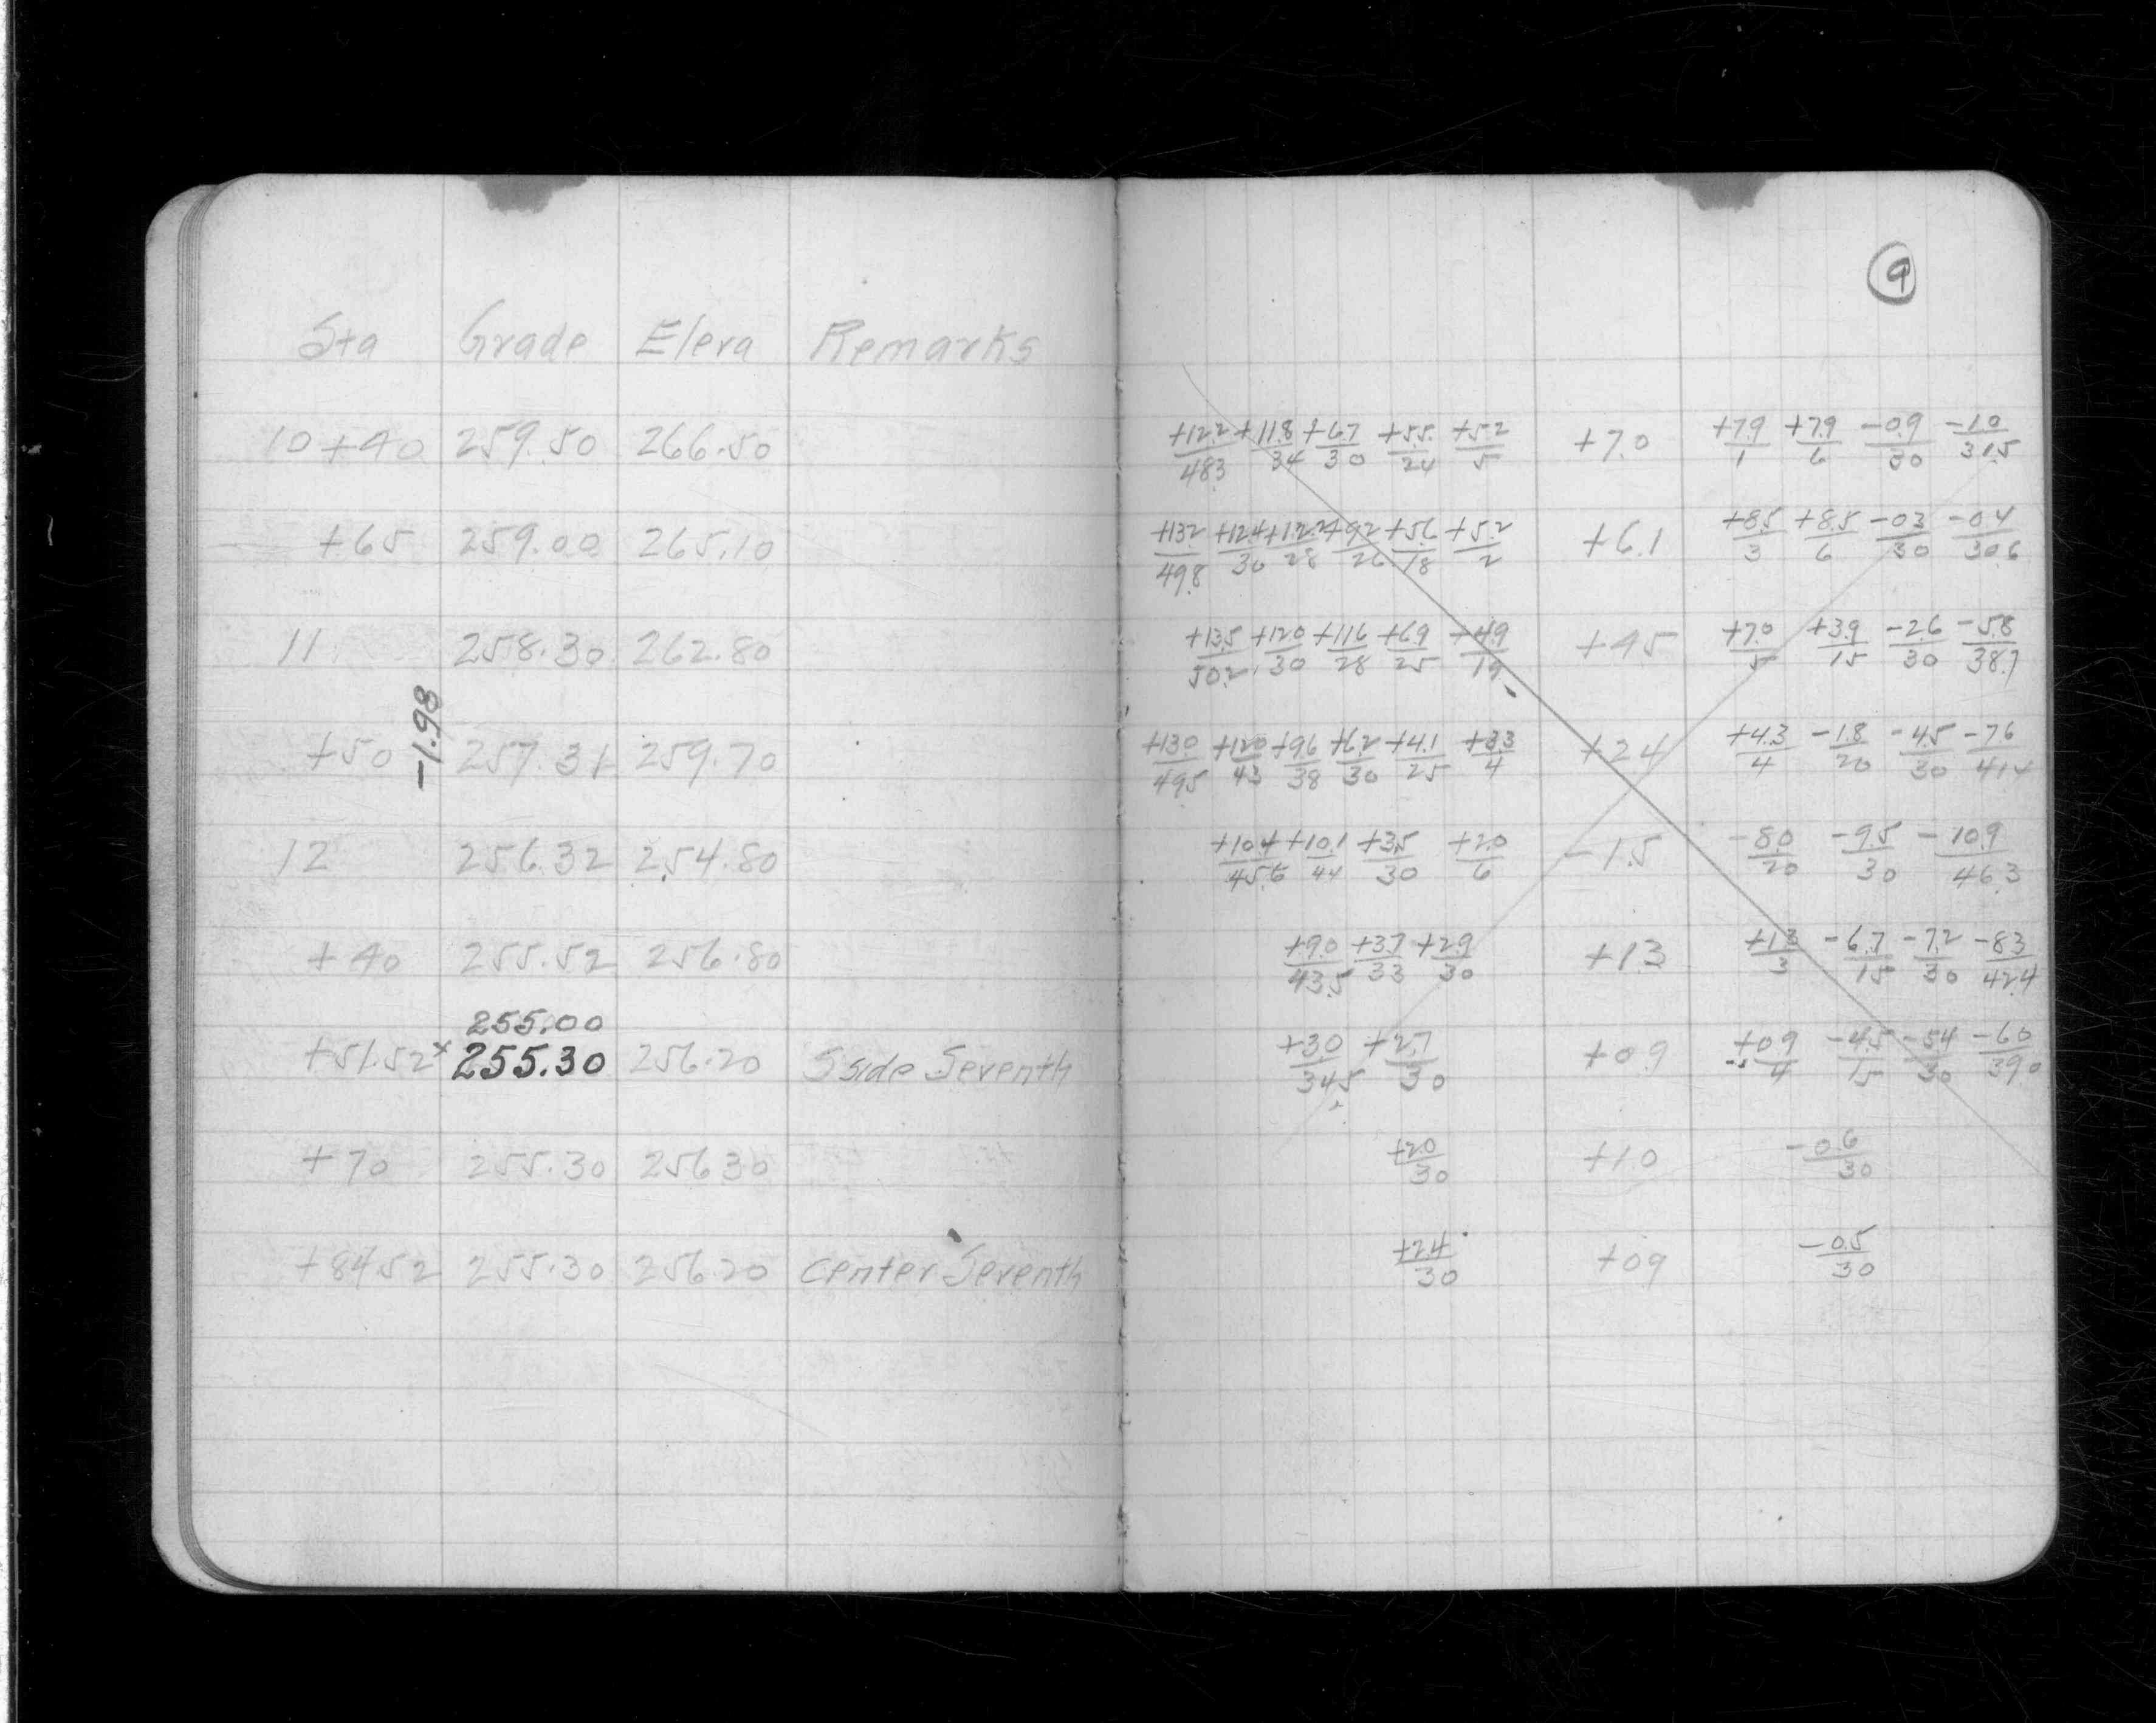 9
Sta Grade Eleva Remarks
10+40 259.50 266.50 +12.2/48.3 +11.8/34 +6.7/30 +5.5/24 +5.2/5 +7.0 +7.9/1 +7.9/6 -0.9/30 -1.0/31.5
+65 259.00 265.10 +13.2/49.8 +12.4/30 +12.2/28 +9.2/26 +5.6/18 +5.2/2 +6.1 +8.5/3 +8.5/6 -0.3/30 -0.4/30.6
11 258.30 262.80 +13.5/50.2 +12.0/30 +11.6/28 +6.9/25 +4.9/19 +4.5 +7.0/5 +3.9/15 -2.6/30 -5.8/38.7
-1.98
+50 257.31 259.70 +13.0/49.5 +12.0/43 +9.6/38 +6.2/30 +4.1/25 +3.3/4 +2.4 +4.3/4 -1.8/20 -4.5/30 -7.6/41.4
12 256.32 254.80 +10.4/45.6 +10.1/44 +3.5/30 +2.0/6 -1.5 -8.0/20 -9.5/30 -10.9/46.3
+40 255.52 256.80 +9.0/43.5 +3.7/33 +2.9/30 +1.3 +1.3/3 -6.7/15 -7.2/30 -8.3/42.4
255.00
+51.52 x 255.30 256.20 S side Seventh +3.0/34.5 +2.7/30 +0.9 +0.9/4 -4.5/15 -5.4/30 -6.0/39.0
+70 255.30 256.30 +2.0/30 +1.0 -0.6/30
+84.52 255.30 256.20 Center Seventh +2.4/30 +0.9 -0.5/30